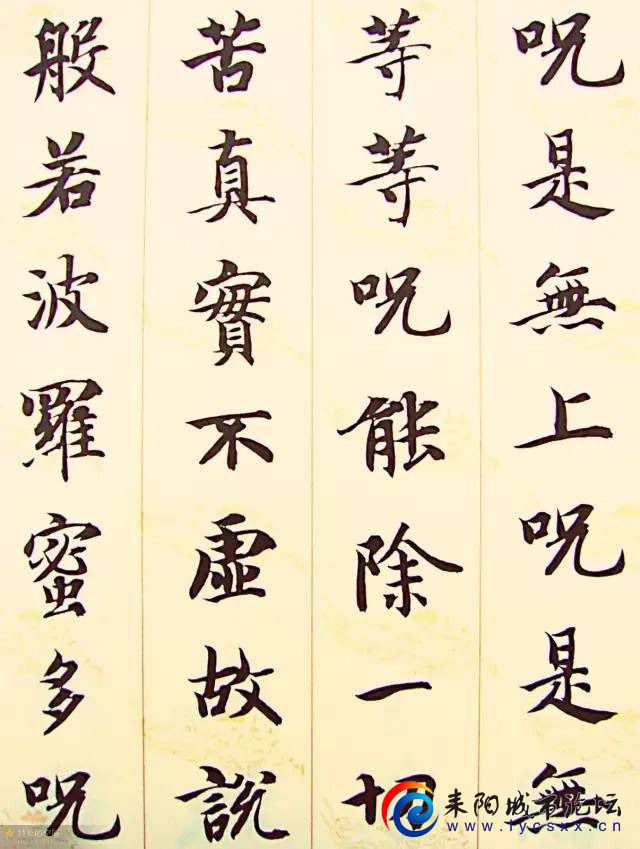 呪是無上呪是無
等等呪能除一切
苦真實不虛故說
般若波羅蜜多呪
耒阳城市论坛
www.lycsxx.cn